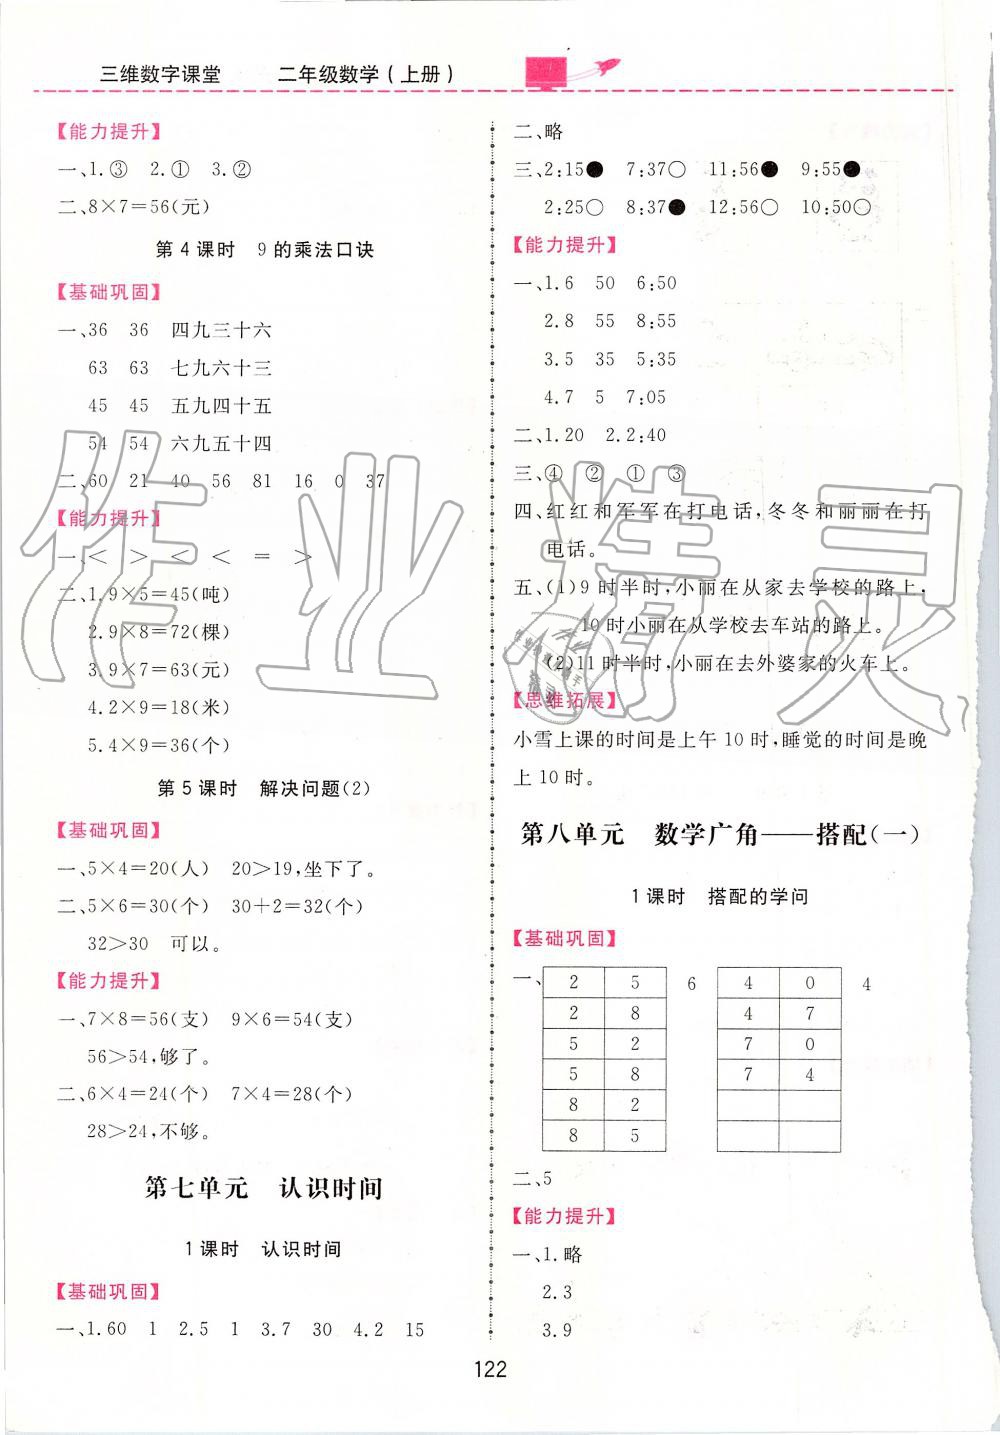 三维数字课堂 二年级数学(上册)
【能力提升】
一、1.③ 2.① 3.②
二、8×7=56(元)
第4课时 9的乘法口诀
【基础巩固】
一、36 36 四九三十六
63 63 七九六十三
45 45 五九四十五
54 54 六九五十四
二、60 21 40 56 81 16 0 37
【能力提升】
一、< > < < = >
二、1.9×5=45(吨)
2.9×8=72(棵)
3.9×7=63(元)
4.2×9=18(米)
5.4×9=36(个)
第5课时 解决问题(2)
【基础巩固】
一、5×4=20(人) 20>19,坐下了。
二、5×6=30(个) 30+2=32(个)
32>30 可以。
【能力提升】
一、7×8=56(支) 9×6=54(支)
56>54,够了。
二、6×4=24(个) 7×4=28(个)
28>24,不够。
第七单元 认识时间
1课时 认识时间
【基础巩固】
一、1.60 1 2.5 1 3.7 30 4.2 15
二、略
三、2:15● 7:37○ 11:56● 9:55●
2:25○ 8:37● 12:56○ 10:50○
【能力提升】
一、1.6 50 6:50
2.8 55 8:55
3.5 35 5:35
4.7 5 7:05
二、1.20 2.2:40
三、④ ② ① ③
四、红红和军军在打电话,冬冬和丽丽在打
电话。
五、(1)9时半时,小丽在从家去学校的路上,
10时小丽在从学校去车站的路上。
(2)11时半时,小丽在去外婆家的火车上。
【思维拓展】
小雪上课的时间是上午10时,睡觉的时间是晚
上10时。
第八单元 数学广角——搭配(一)
1课时 搭配的学问
【基础巩固】
一、 2 5 6 4 0 4
2 8 4 7
5 2 7 0
5 8 7 4
8 2
8 5
二、5
【能力提升】
一、1.略
2.3
3.9
122
作业精灵